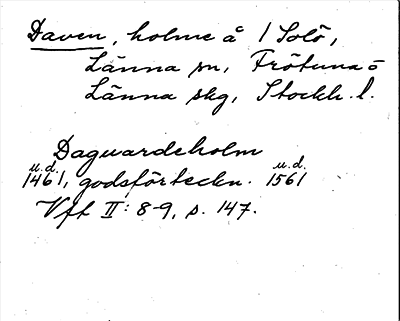 Daven, holme å / Solö,
Länna sn, Frötuna o
Länna skg, Stockh. l.
Daguardeholm
u.d. u.d.
1461, godsförteckn. 1561
Vft II: 8-9, s. 147.